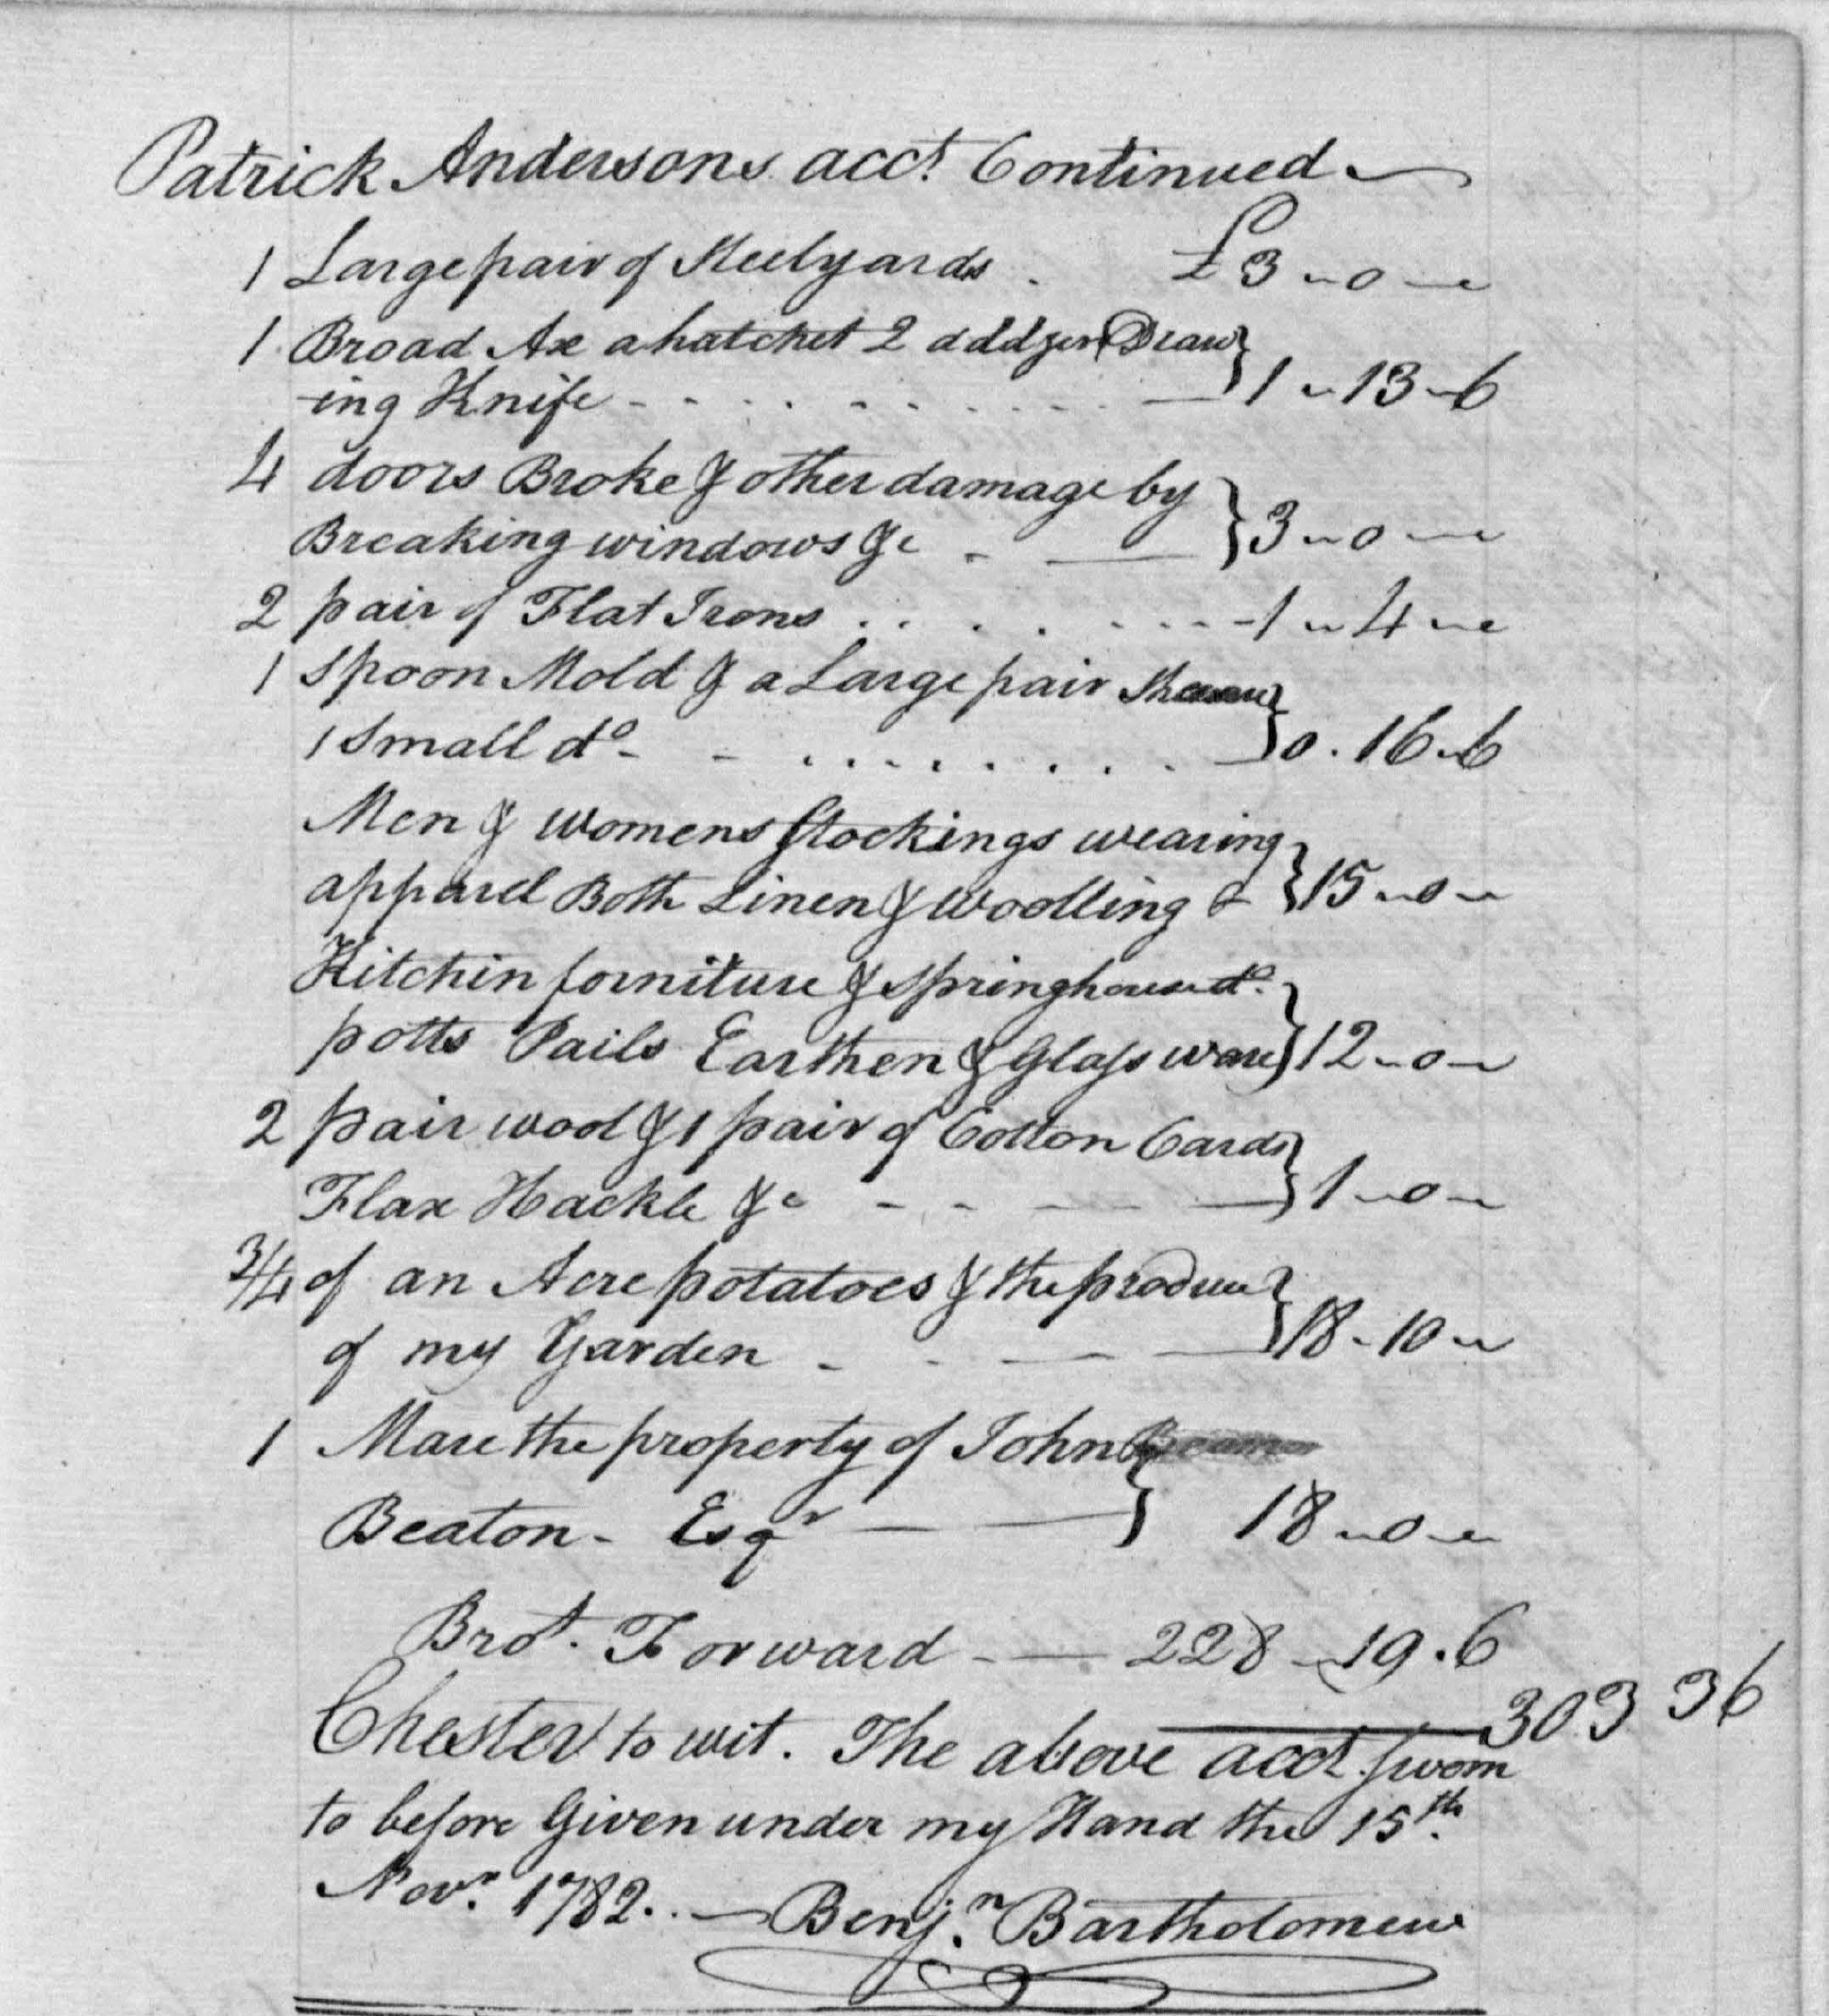 Patrick Andersons acct. Continued
1 Large pair of Steelyards . £3 ~ 0 ~
1 Broad Axe a hatchet 2 Draw
-ing Knife - - - - 1 ~ 13 ~ 6
4 doors Broke & other damage by
Breaking windows &c - — 3 ~ 0 ~
2 pair of Flat Irons . . . . - - - 1 ~ 4 ~
1 Spoon Mold & a Large pair
1 Small do - - . . . . . . . 0 . 16 ~ 6
Men & womens Stockings wearing
apparel Both Linen & woolling & 15 ~ 0 ~
Kitchin forniture & Springhouse do.
potts Pails Earthen & Glass ware 12 ~ 0 ~
2 pair wool & 1 pair of Cotton Cards
Flax Hackle &c - - — — 1 ~ 0 ~
3/4 of an Acre potatoes & the produce
of my Garden - - — — 18 ~ 10 ~
1 Mare the property of John
Beaton - Esqr — — 18 ~ 0 ~
Brot. Forward - — 228 ~ 19 . 6
303 3 6
Chester to wit. The above acct. Sworn
to before Given under my Hand the 15th.
Novr. 1782. . — Benjn. Bartholomew